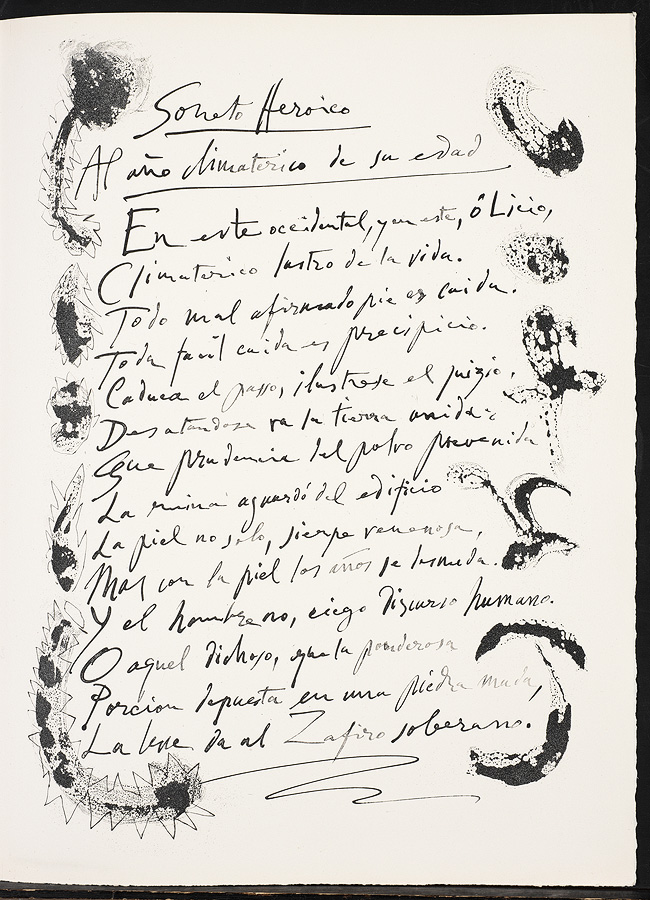 Soneto Heroico
Al año climaterico de su edad
En este occidental, y en este, ô Licio,
Climaterico lustro de la vida.
Todo mal afirmado pie es caida.
Toda facil caida es precipicio.
Caduca el passo, ilustrese el juizio.
Desatandose va la tierra unida:
Que prudencia del polvo prevenida
La ruina aguardó del edificio
La piel no solo, sierpe venenosa,
Mas con la piel los años se desnuda.
Y el hombre no, ciego discurso humano.
O aquel dichoso, que la ponderosa
Porcion depuesta en una piedra muda,
La leve da al Zafiro soberano.